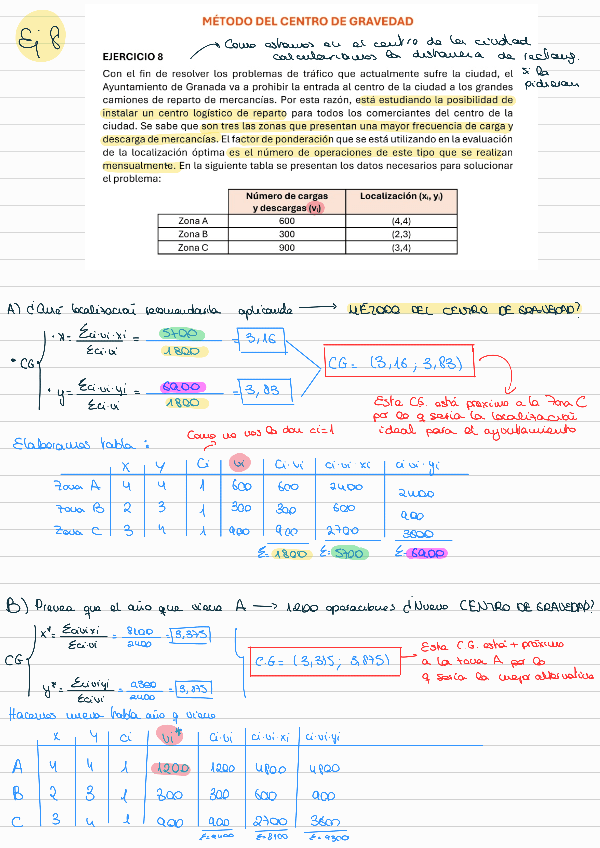 MÉTODO DEL CENTRO DE GRAVEDAD
Ej 8
→ Como estamos en el centro de la ciudad
calcularíamos la distancia de rectang.
si la
pidieran
EJERCICIO 8
Con el fin de resolver los problemas de tráfico que actualmente sufre la ciudad, el
Ayuntamiento de Granada va a prohibir la entrada al centro de la ciudad a los grandes
camiones de reparto de mercancías. Por esta razón, está estudiando la posibilidad de
instalar un centro logístico de reparto para todos los comerciantes del centro de la
ciudad. Se sabe que son tres las zonas que presentan una mayor frecuencia de carga y
descarga de mercancías. El factor de ponderación que se está utilizando en la evaluación
de la localización óptima es el número de operaciones de este tipo que se realizan
mensualmente. En la siguiente tabla se presentan los datos necesarios para solucionar
el problema:
Número de cargas y descargas (vᵢ) Localización (xᵢ, yᵢ)
Zona A 600 (4,4)
Zona B 300 (2,3)
Zona C 900 (3,4)
A) ¿Qué localización recomendaría aplicando → MÉTODO DEL CENTRO DE GRAVEDAD?
• CG
• x = Σci·vi·xi / Σci·vi = 5700 / 1800 = 3,16
• y = Σci·vi·yi / Σci·vi = 6900 / 1800 = 3,83
CG = (3,16 ; 3,83)
Este CG. está próximo a la Zona C
por lo q sería la localización
ideal para el ayuntamiento
Como no nos lo dan ci=1
Elaboramos tabla:
X Y Ci vi Ci·vi ci·vi·xi ci·vi·yi
Zona A 4 4 1 600 600 2400 2400
Zona B 2 3 1 300 300 600 900
Zona C 3 4 1 900 900 2700 3600
Σ= 1800 Σ= 5700 Σ= 6900
B) Prevea que el año que viene A → 1200 operaciones ¿Nuevo CENTRO DE GRAVEDAD?
CG
x* = Σcivixi / Σci·vi = 8100 / 2400 = 3,375
y* = Σciviyi / Σcivi = 9300 / 2400 = 3,875
C.G = (3,375 ; 3,875)
Este C.G. está + próximo
a la zona A por lo
q sería la mejor alternativa
Hacemos nueva tabla año q viene
X Y ci vi* ci·vi ci·vi·xi ci·vi·yi
A 4 4 1 1200 1200 4800 4800
B 2 3 1 300 300 600 900
C 3 4 1 900 900 2700 3600
Σ=2400 Σ=8100 Σ=9300